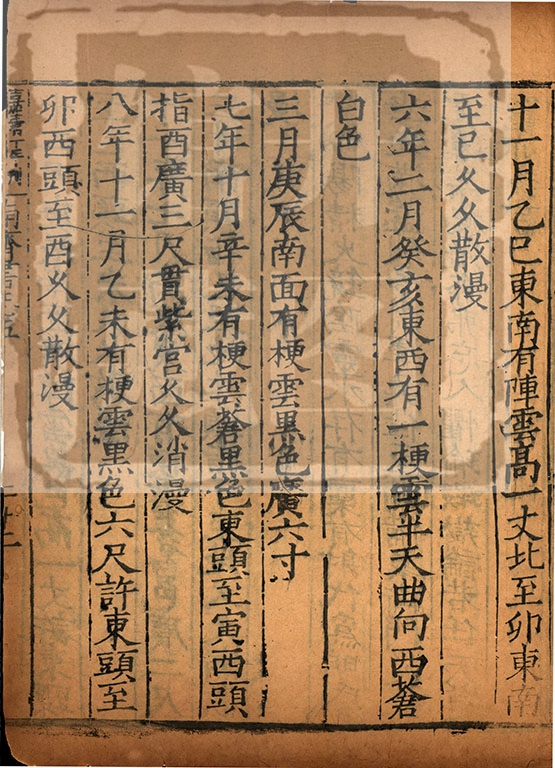 十一月乙巳東南有陣雲高一丈北至卯東南
至巳久久散漫
六年二月癸亥東西有一梗雲半天曲向西蒼
白色
三月庚辰南面有梗雲黑色廣六寸
七年十月辛未有梗雲蒼黑色東頭至寅西頭
指酉廣三尺貫紫宮久久消漫
八年十一月乙未有梗雲黑色六尺許東頭至
卯西頭至酉久久散漫